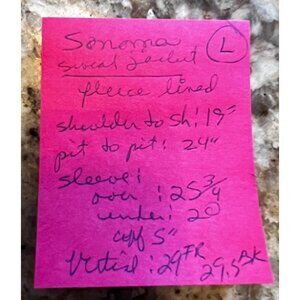 Sonoma
L
sweat jacket
fleece lined
shoulder to sh: 19"
pit to pit: 24"
sleeve:
over : 25 3/4
under: 20
cuff 5"
Vertical : 29 FR 29.5 BK